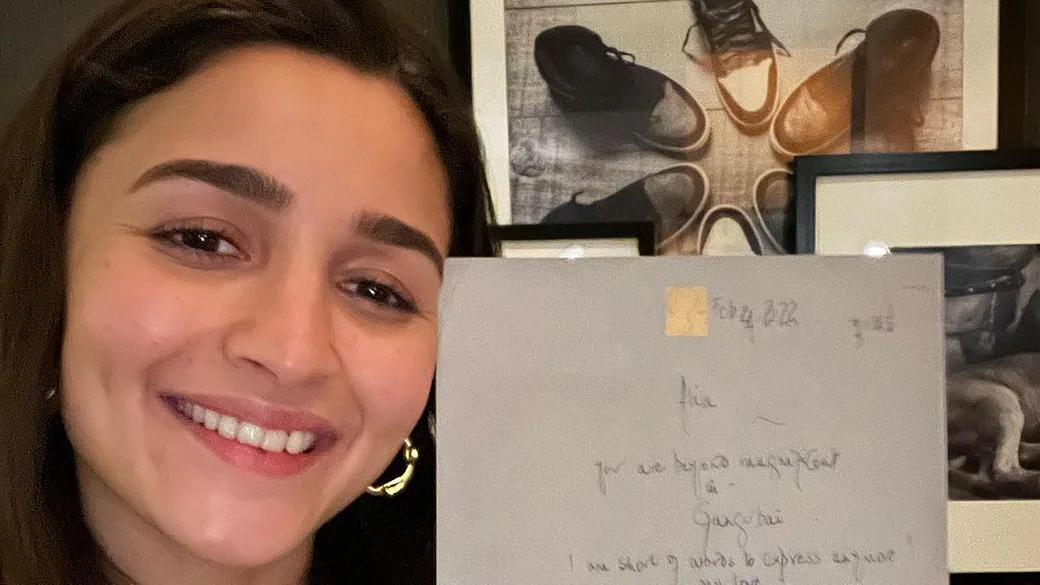 Feb
Alia
you are beyond magnificent
in -
Gangubai
I am short of words to express anymore !
my love